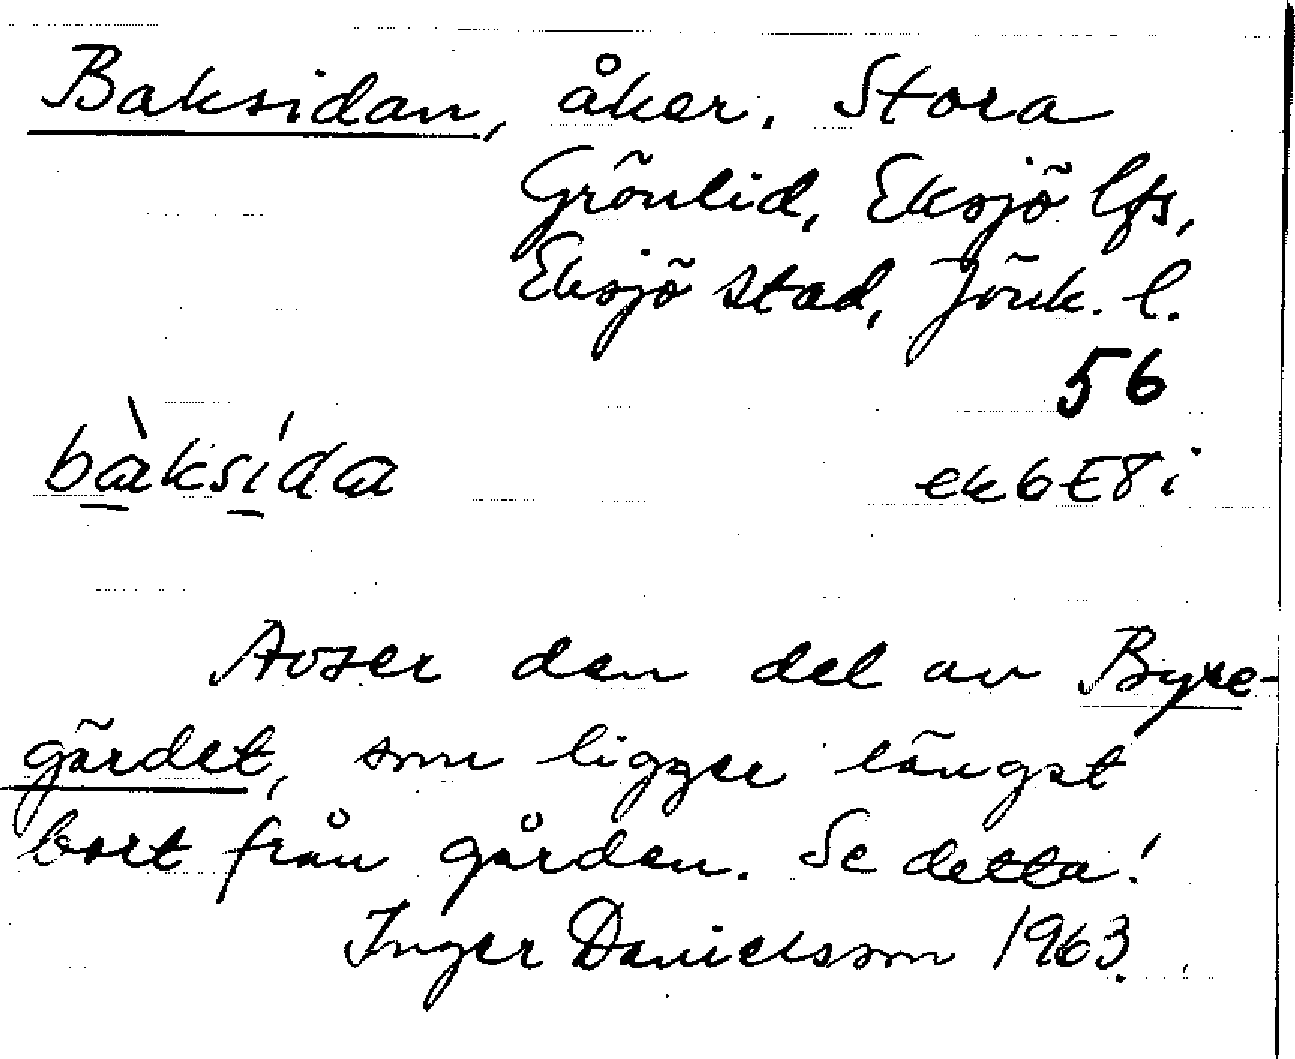 Baksidan, åker. Stora
Grönlid, Eksjö lfs,
Eksjö stad, Jönk. l.
56
bàksída
ek 6 E 8 i
Avser den del av Byre-
gärdet, som ligger längst
bort från gården. Se detta!
Inger Danielsson 1963.